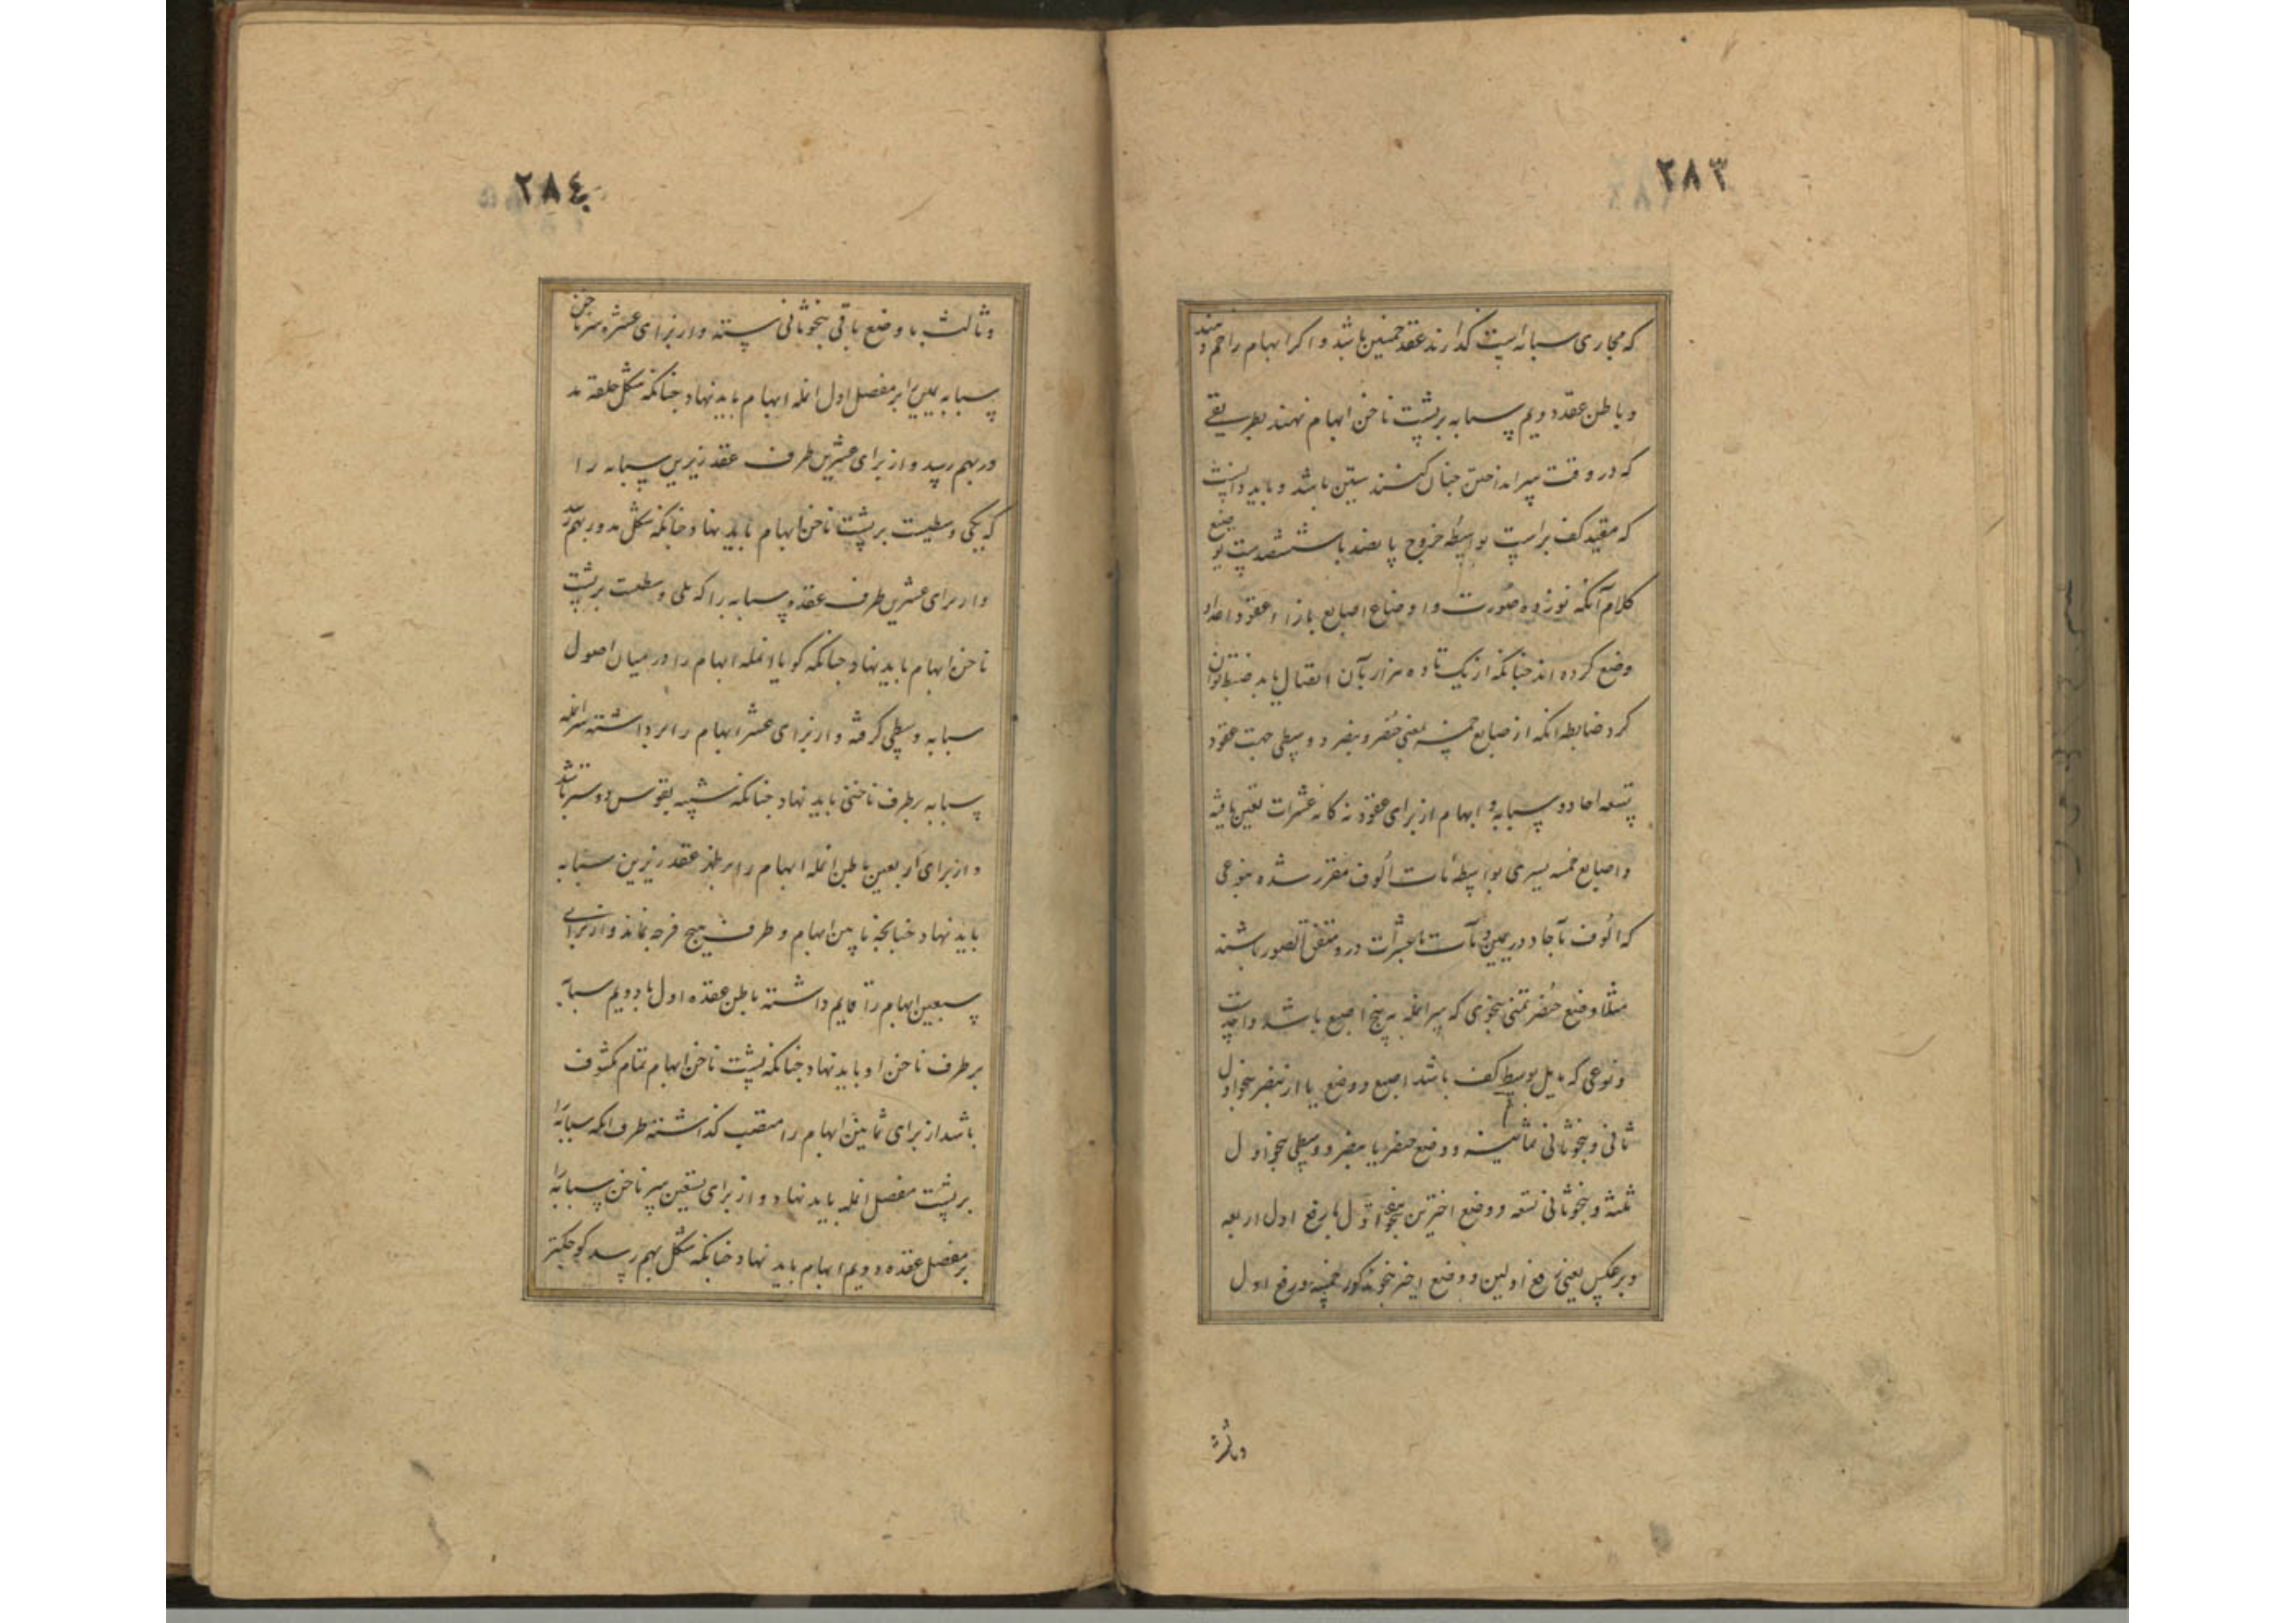 ٢٨٣
که مجاری سبابه است گذارند عقد خمسین باشد و اگر ابهام را خم دهند
و باطن عقد دویم سبابه بر پشت ناخن ابهام نهند بطریقی
که در وقت تیر انداختن چنان کنند ستین باشد و باید دانست
که مقید کف براست بواسطه خروج پانصد با ششصدست
کلام آنکه نوزده صورت و اوضاع اصابع بازاء عقود اعداد
وضع کرده اند چنانکه از یک تا ده هزار بآن ضبط توان
کرد ضابطه انکه از اصابع خمسه یعنی خنصر و بنصر و وسطی جهت عقود
تسعه احاد و سبابه و ابهام از برای عقود نه کانه عشرات تعیین یافته
و اصابع خمسه یسری بواسطه مآت الوف مقرر شده بنوعی
که الوف تا آحاد در یمین و مآت تا عشرات درو متفق الصور باشند
مثلا وضع خنصر یمنی بنحوی که سر انمله به بیخ اصبع باشد واحدست
و نوعی که مایل بوسط کف باشد اصبع و وضع با از بنصر بنحو اول
ثانی و بنحو ثانی ثمانیه و وضع خنصر با بنصر و وسطی بنحو اول
ثلثه و بنحو ثانی تسعه و وضع اخیرین بنحو اول با رفع اول اربعه
و برعکس یعنی رفع اولین و وضع اخیر بنحو مذکور خمسه و رفع اول
و ثالث
٢٨٤
و ثالث با وضع باقی بنحو ثانی سته و از برای عشره سر ناخن
سبابه یمین را بر مفصل اول انمله ابهام باید نهاد چنانکه شکل حلقه مد
ور بهم رسد و از برای عشرین طرف عقد زیرین سبابه را
که یکی وسطیست بر پشت ناخن ابهام باید نهاد چنانکه شکل مدور بهم رسد
و از برای عشرین طرف عقد و سبابه را که یلی وسطست بر پشت
ناخن ابهام باید نهاد چنانکه گویا انمله ابهام را در میان اصول
سبابه و وسطی گرفته و از برای عشر ابهام را بر داشته سر انمله
سبابه بر طرف ناخنی باید نهاد چنانکه شبیه بقوس و وتر باشد
و از برای اربعین باطن انمله ابهام را بر ظهر عقد زیرین سبابه
باید نهاد چنانچه ما بین ابهام و طرف هیچ فرجه نماند و از برای
سبعین ابهام را قایم داشته باطن عقده اول یا دویم سبابه
بر طرف ناخن او باید نهاد چنانکه پشت ناخن ابهام تمام مکشوف
باشد از برای ثمانین ابهام را منتصب گذاشته طرف انمله سبابه را
بر پشت مفصل انمله باید نهاد و از برای تسعین سر ناخن سبابه را
بر مفصل عقده دویم ابهام باید نهاد چنانکه شکل بهم رسد کوچکتر